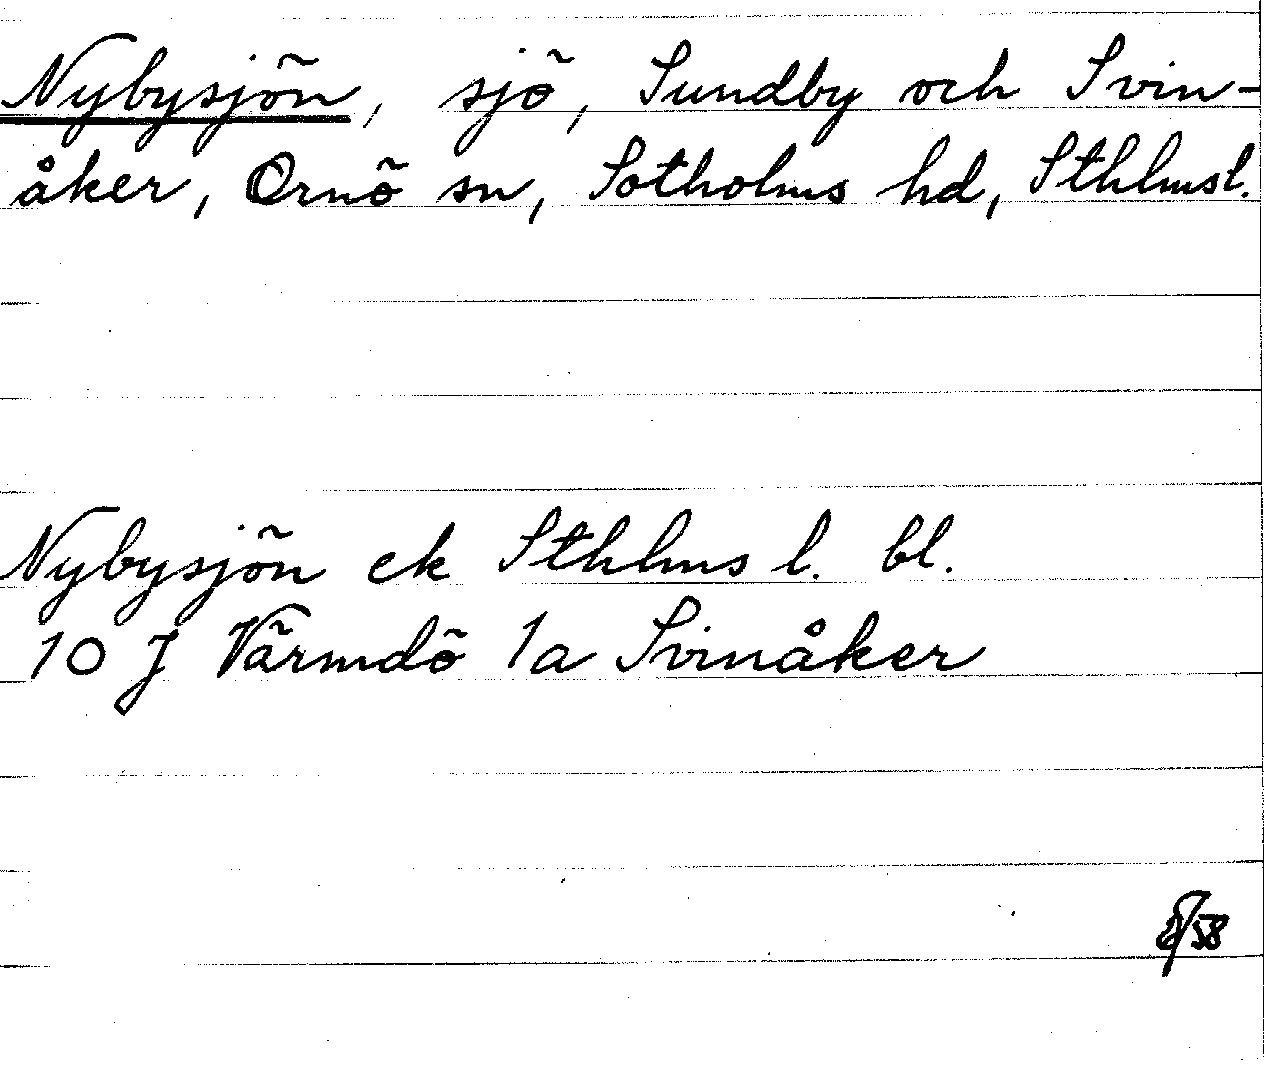 Nybysjön, sjö, Sundby och Svin-
åker, Ornö sn, Sotholms hd, Sthlmsl.
Nybysjön ek Sthlms l. bl.
10 J Värmdö 1a Svinåker